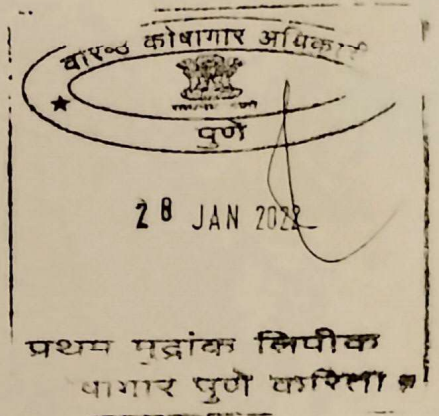 वरिष्ठ कोषागार अधिकारी
पुणे
28 JAN 2022
प्रथम मुद्रांक लिपीक
पुणे करिता